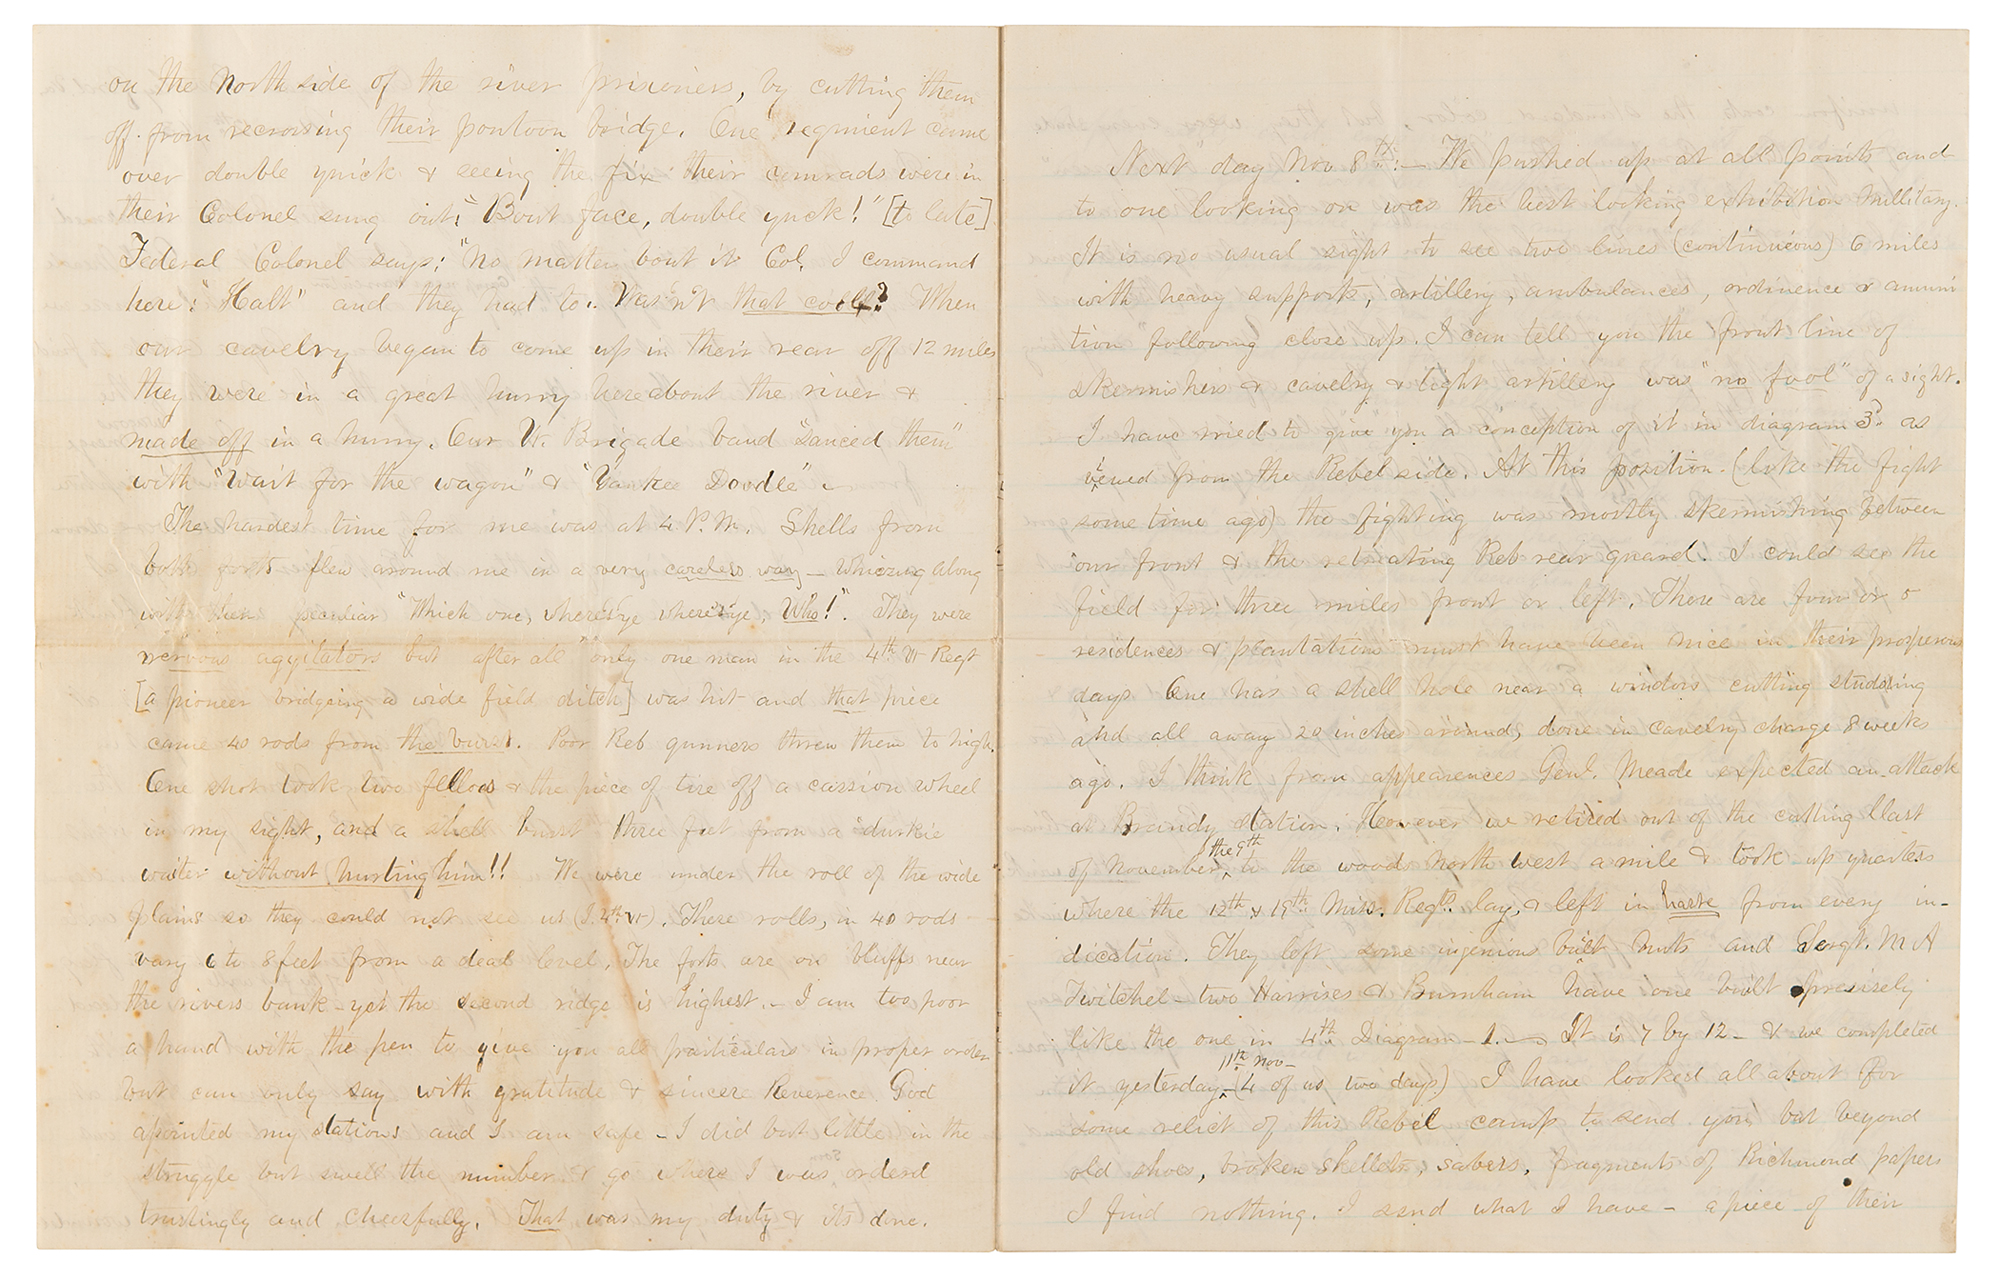 on the North side of the river prisoners, by cutting them
off from recrossing their pontoon bridge. One regiment came
over double quick & seeing the fix their comrads were in
their Colonel sung out: "Bout face, double quick!" [to late]
Federal Colonel says: "No matter bout it Col. I command
here: "Halt" and they had to. Was n't that cool? When
our cavelry began to come up in their rear off 12 miles
they were in a great hurry hereabout the river &
made off in a hurry. Our Vt. Brigade band "danced them"
with "Wait for the wagon" & "Yankee Doodle" –
The hardest time for me was at 4 P.M. Shells from
both forts flew around me in a very careless way – Whizzing along
with their peculiar "Which one, where'd'ye where'd'ye, Who!". They were
"nervous aggitators" but after all only one man in the 4th Vt Regt
[a pioneer bridgeing a wide field ditch] was hit and that piece
came 40 rods from the burst. Poor Reb gunners threw them to high.
One shot took two felloes & the piece of tire off a cassion wheel
in my sight, and a shell burst three feet from a "darkie
waiter without hurting him!! We were under the roll of the wide
plains so they could not see us (I. 4th Vt). There rolls, in 40 rods
vary 6 to 8 feet from a dead level. The forts are on bluffs near
the rivers bank – yet the second ridge is highest. – I am too poor
a hand with the pen to give you all particulars in proper order
but can only say with gratitude & sincere Reverence God
apointed my stations and I am safe – I did but little in the
struggle but swell the number & go where I was orderd
trustingly and cheerfully. That was my duty & its done.
Next day Nov 8th: – We pushed up at all points and
to one looking on was the best looking exhibition Millitary.
It is no usual sight to see two lines (continuieous) 6 miles
with heavy supports, artillery, ambulances, ordinence & amuni
tion following close up. I can tell you the front line of
skermishers & cavelry & light artillery was "no fool" of a sight.
I have tried to give you a conception of it in diagram 3d as
viewed from the Rebel side. At this position (like the fight
some time ago) the fighting was mostly skermishing between
our front & the retreating Reb rear guard. I could see the
field for three miles front or left. There are four or 5
residences & plantations must have been nice in their prosperous
days One has a shell hole near a windows cutting studding
and all away 20 inches around, done in cavelry charge 8 weeks
ago. I think from appearences Genl. Meade expected an attack
at Brandy station. However we retired out of the cutting blast
of November the 9th to the woods North west a mile & took up quarters
where the 12th & 19th Miss. Regts. lay, & left in haste from every in-
dication. They left some ingenious built huts and Sergt. M A
Twitchel – two Harrises & Burnham have one built presisely
like the one in 4th Diagram – 1. – It is 7 by 12 – & we completed
it yesterday – 11th Nov – (4 of us two days) I have looked all about for
some relict of this Rebel camp to send you but beyond
old shoes, broken skellets, sabers, fragments of Richmond papers
I find nothing. I send what I have – a piece of their